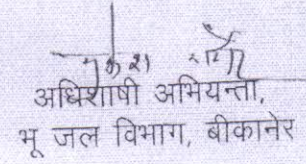 अधिशाषी अभियन्ता,
भू जल विभाग, बीकानेर